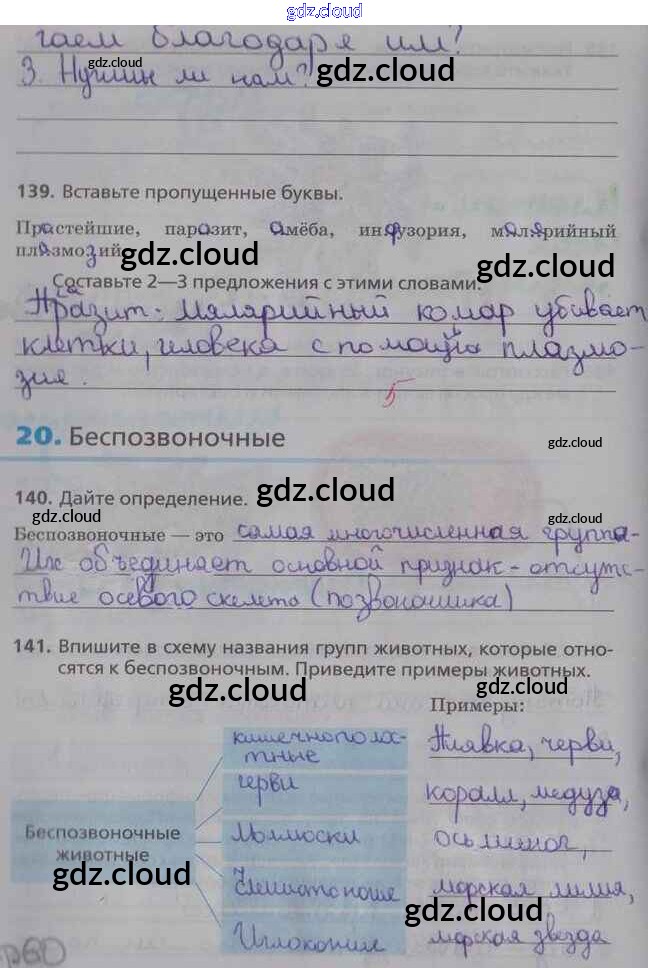 gdz.cloud
гаем благодаря им?
3. Нужны ли нам?
gdz.cloud
gdz.cloud
gdz.cloud
139. Вставьте пропущенные буквы.
Простейшие, паразит, амёба, инфузория, малярийный
gdz.cloud
плазмодий
gdz.cloud
Составьте 2—3 предложения с этими словами.
Паразит - Мялярийный комар убивает
клетки, человека с помощью плазмо-
зия.
5
20. Беспозвоночные
gdz.cloud
140. Дайте определение.
gdz.cloud
gdz.cloud
gdz.cloud
Беспозвоночные — это самая многочисленная группа-
Их объединяет основной признак - отсутс-
твие осевого скелета (позвоночника)
141. Впишите в схему названия групп животных, которые отно-
сятся к беспозвоночным. Приведите примеры животных.
gdz.cloud
gdz.cloud
Примеры:
кишечнополос-
тные
Пиявка, черви,
черви
коралл, медуза,
Беспозвоночные
животные
Моллюски
осьминог,
gdz.cloud
Членистоногие
морская лилия,
gdz.cloud
Иглокожие
морская звезда